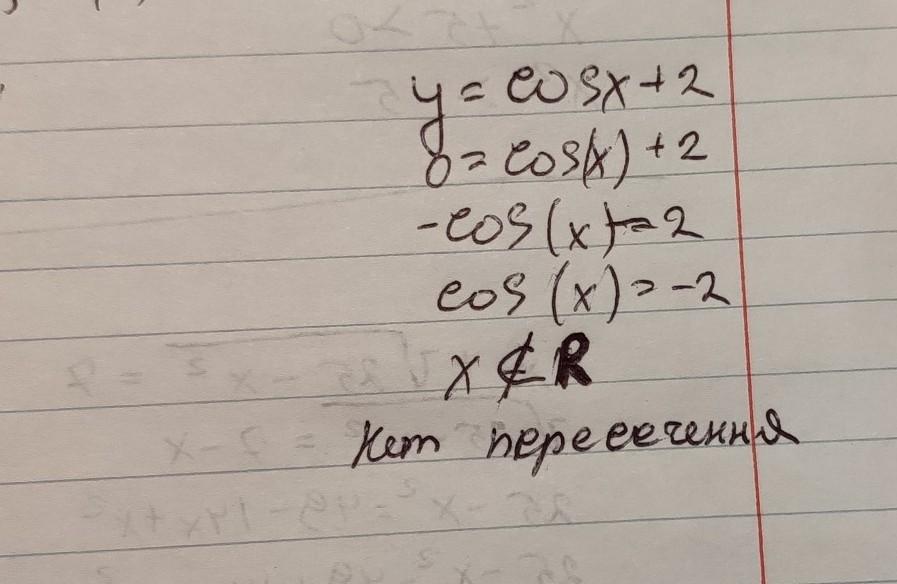 y = cosx + 2
0 = cos(x) + 2
-cos(x) = 2
cos(x) = -2
x ∉ R
нет пересечения